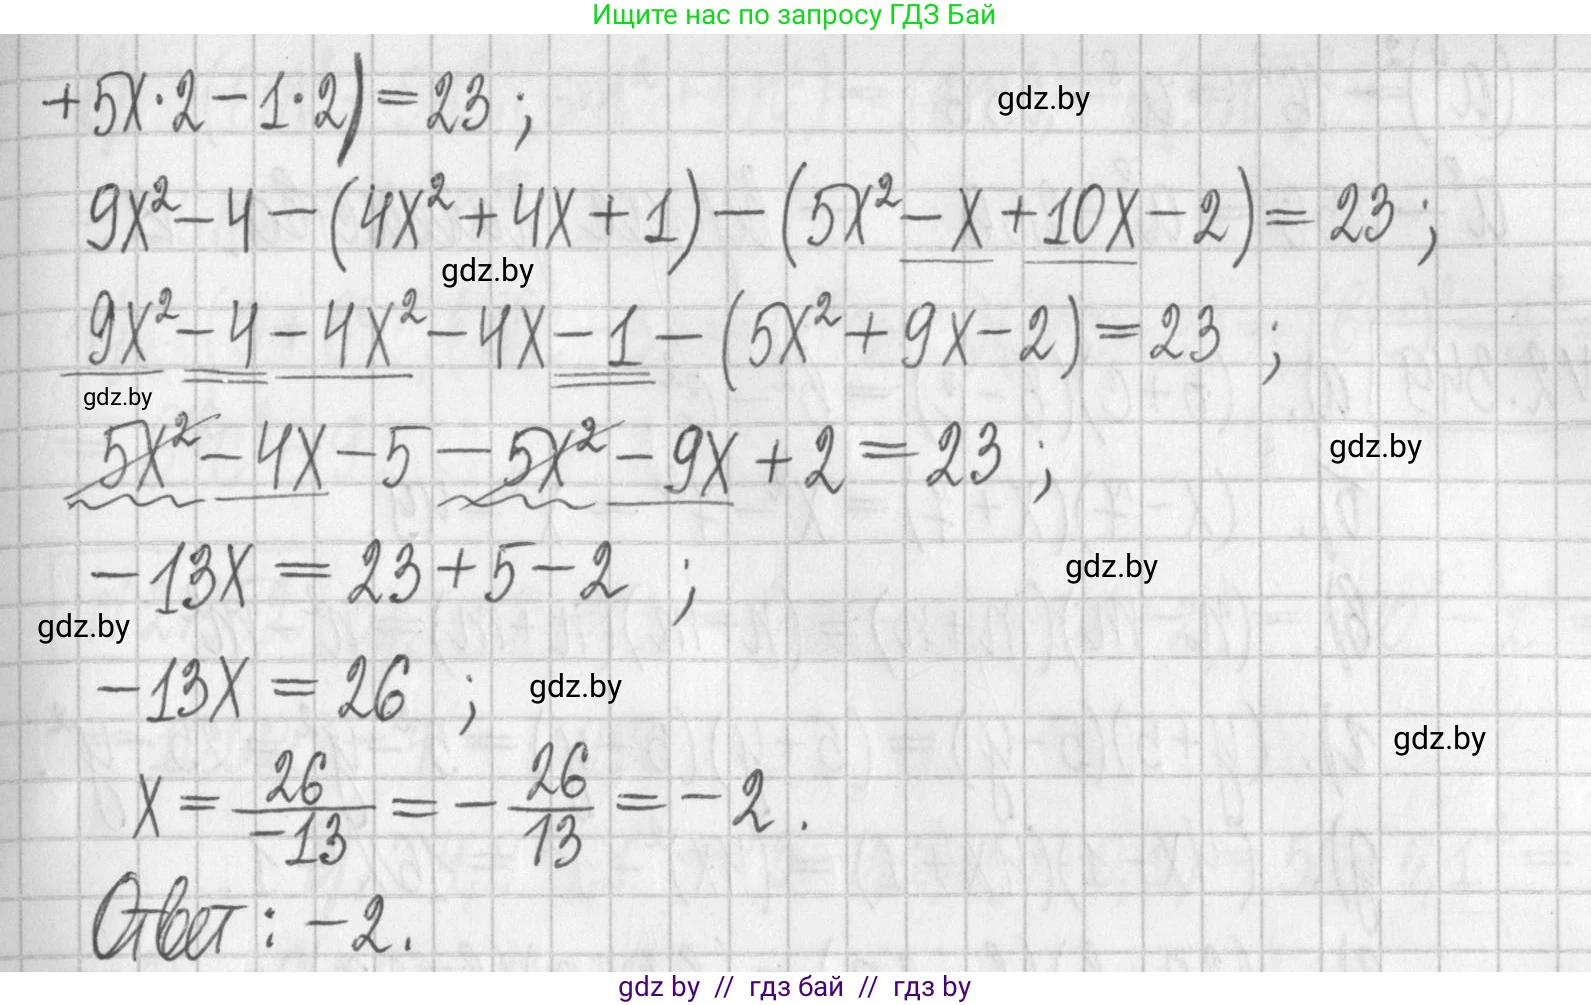 Ищите нас по запросу ГДЗ Бай
+5x·2-1·2)=23;
gdz.by
9x²-4-(4x²+4x+1)-(5x²-x+10x-2)=23;
gdz.by
9x²-4-4x²-4x-1-(5x²+9x-2)=23;
gdz.by
5x²-4x-5-5x²-9x+2=23;
gdz.by
-13x=23+5-2;
gdz.by
gdz.by
-13x=26;
gdz.by
gdz.by
x=26/-13=-26/13=-2.
Ответ: -2.
gdz by // гдз бай // гдз by